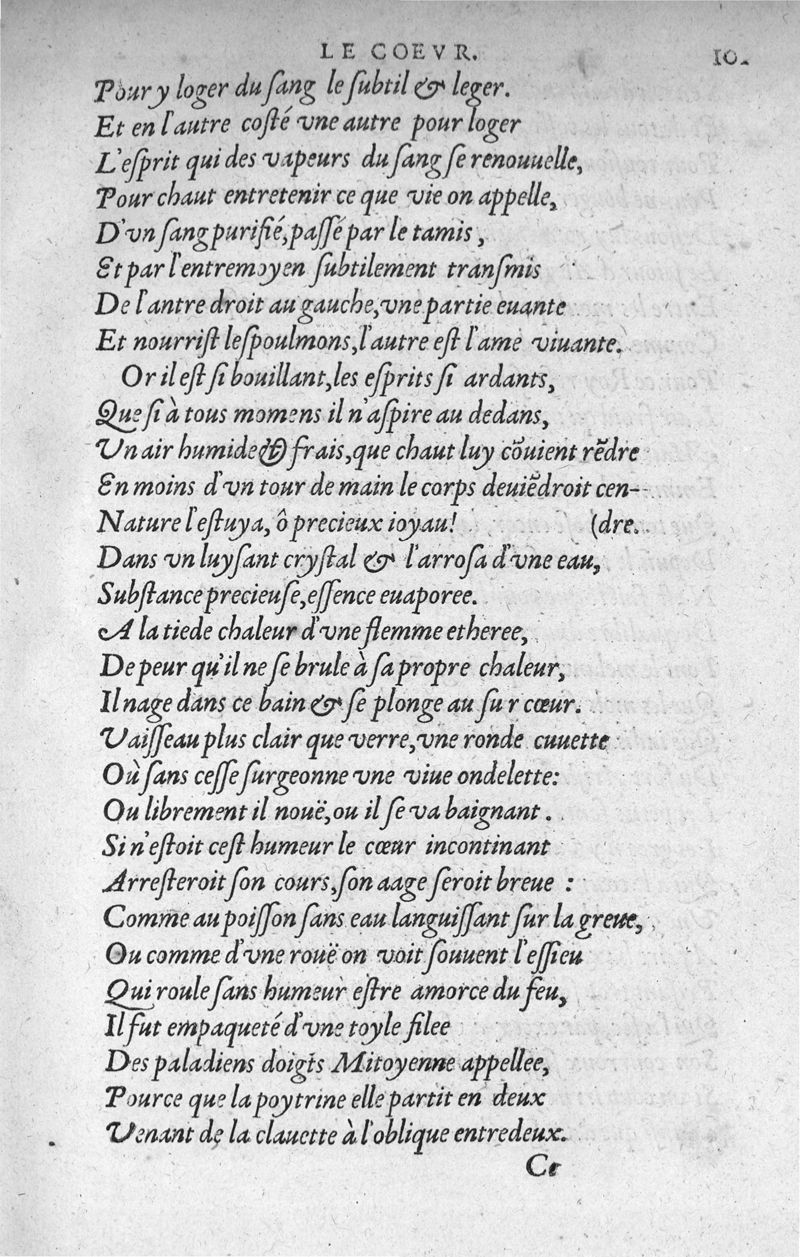 LE COEVR. 10.
Pour y loger du ſang le ſubtil & leger.
Et en l'autre coſté vne autre pour loger
L'eſprit qui des vapeurs du ſang ſe renouuelle,
Pour chaut entretenir ce que vie on appelle,
D'vn ſang purifié, paſſé par le tamis,
Et par l'entremoyen ſubtilement tranſmis
De l'antre droit au gauche, vne partie euante
Et nourriſt les poulmons, l'autre eſt l'ame viuante.
Or il eſt ſi bouillant, les eſprits ſi ardants,
Que ſi à tous momens il n'aſpire au dedans,
Vn air humide & frais, que chaut luy cõuient rẽdre
En moins d'vn tour de main le corps deuiẽdroit cen-
Nature l'eſtuya, ô precieux ioyau! (dre.
Dans vn luyſant cryſtal & l'arroſa d'vne eau,
Subſtance precieuſe, eſſence euaporee.
A la tiede chaleur d'vne flemme etheree,
De peur qu'il ne ſe brule à ſa propre chaleur,
Il nage dans ce bain & ſe plonge au ſu r cœur.
Vaiſſeau plus clair que verre, vne ronde cuuette
Où ſans ceſſe ſurgeonne vne viue ondelette:
Ou librement il nouë, ou il ſe va baignant.
Si n'eſtoit ceſt humeur le cœur incontinant
Arreſteroit ſon cours, ſon aage ſeroit breue :
Comme au poiſſon ſans eau languiſſant ſur la greue,
Ou comme d'vne rouë on voit ſouuent l'eſſieu
Qui roule ſans humeur eſtre amorce du feu,
Il fut empaqueté d'vne toyle filee
Des paladiens doigts Mitoyenne appellee,
Pource que la poytrine elle partit en deux
Venant de la clauette à l'oblique entredeux.
Ce